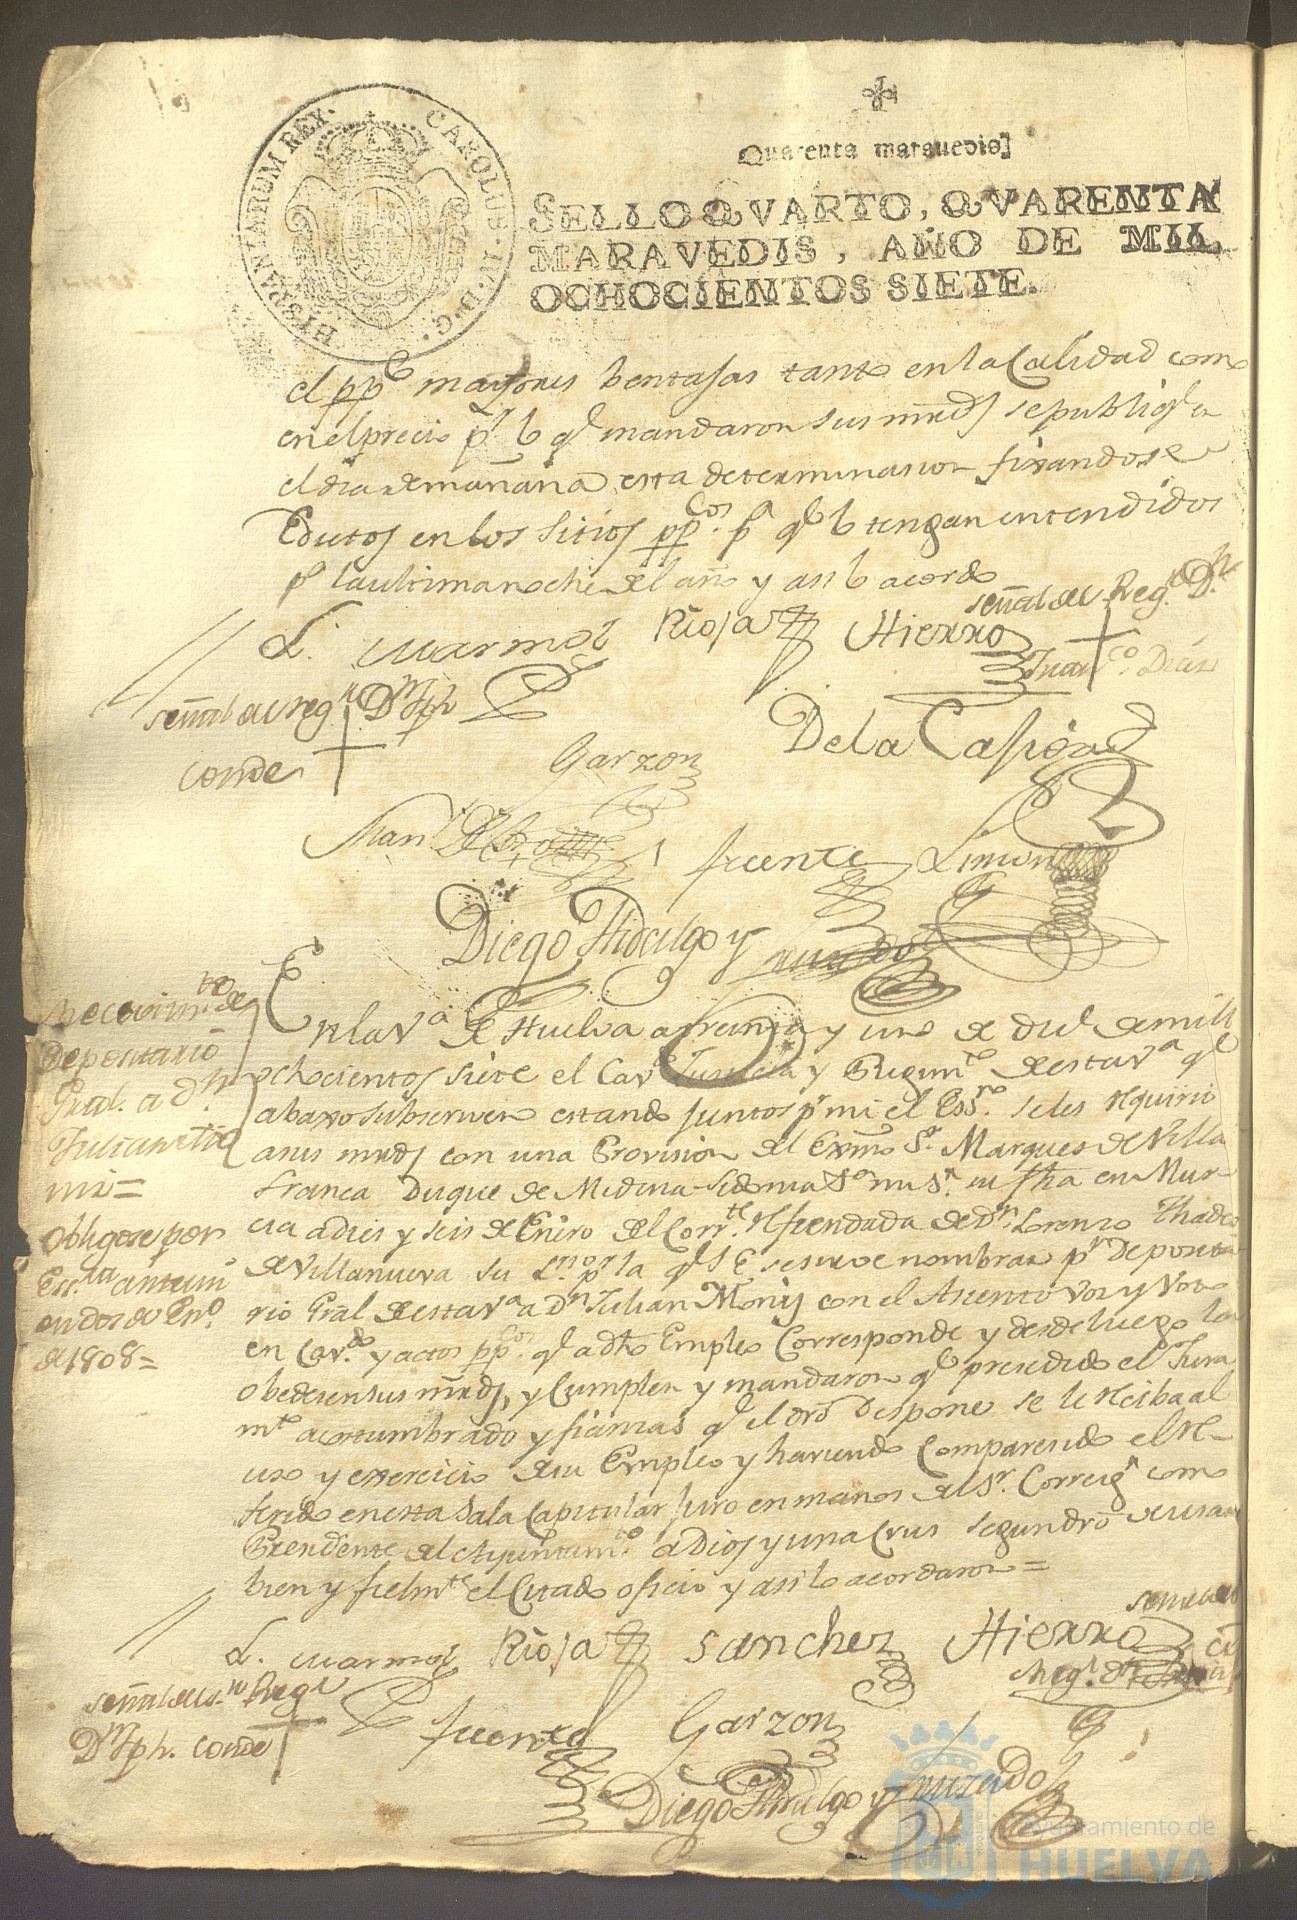 HISPANIARUM REX. CAROLUS. IV. D. G.
Quarenta marauedis
SELLO QVARTO, QVARENTA
MARAVEDIS, AÑO DE MIL
OCHOCIENTOS SIETE.
el pp.co mayores bentajas tanto en la Calidad como
en el precio p.r lo q.e mandaron sus mrds se publiq.e
el dia de mañana esta determinasion fixandose
Edictos en los sitios pp.cos p.a q.e lo tengan entendidos
p.a la ultima noche del año y asi lo acordo
L. Marmol Rioja Hierro señal del Reg.r D.n
Juan Diaz
señal del reg.r D.n Jph
Conde
Garzon De la Casa
Man.l
fuente Limon
Diego Hidalgo y
Recevim.to de
Depositario
Gral. a d.n
Julian
En la V.a de Huelva a treinta y uno de Dic.e de mill
ochocientos siete el Cav.do Justicia y Regim.to de esta V.a q.e
abaxo subscriven estando juntos p.r mi el Ess.no se les requirio
a sus mrds con una Provision del Exmo S.r Marques de Villa
franca Duque de Medina Sidonia S.or mi S.r su fha en Mur
cia a dies y seis de Enero del Corr.te refrendada de d.n Lorenzo Thadeo
de Villanueva su S.rio p.r la q.e S E se sirve nombrar p.r Deposita
rio Gral de esta V.a a D.n Julian Monis con el Asiento Vos y Voto
en Cav.do y actos pp.cos q.e a dho Empleo Corresponde y desde luego la
obedesen sus mrds, y Cumplen y mandaron q.e presedido el Jura
m.to acostumbrado y fianzas q.e el dro Dispone se le reciba al
uso y exercicio de su Empleo y haviendo Comparesido el re-
ferido en esta Sala Capitular Juro en manos del S.r Correg.r como
Presidente del Ayuntam.to a Dios y una Crus segun dro de usar
bien y fielm.te el Citado oficio y asi lo acordaron =
Obligose por
Ess.ra ante mi
en dos de En.o
de 1808 =
L. Marmol Rioja Sanchez Hierro
señal del S.r Reg.r
D.n Jph. Conde
fuente Garzon
Diego Hidalgo y Cruzado
Ayuntamiento de
HUELVA